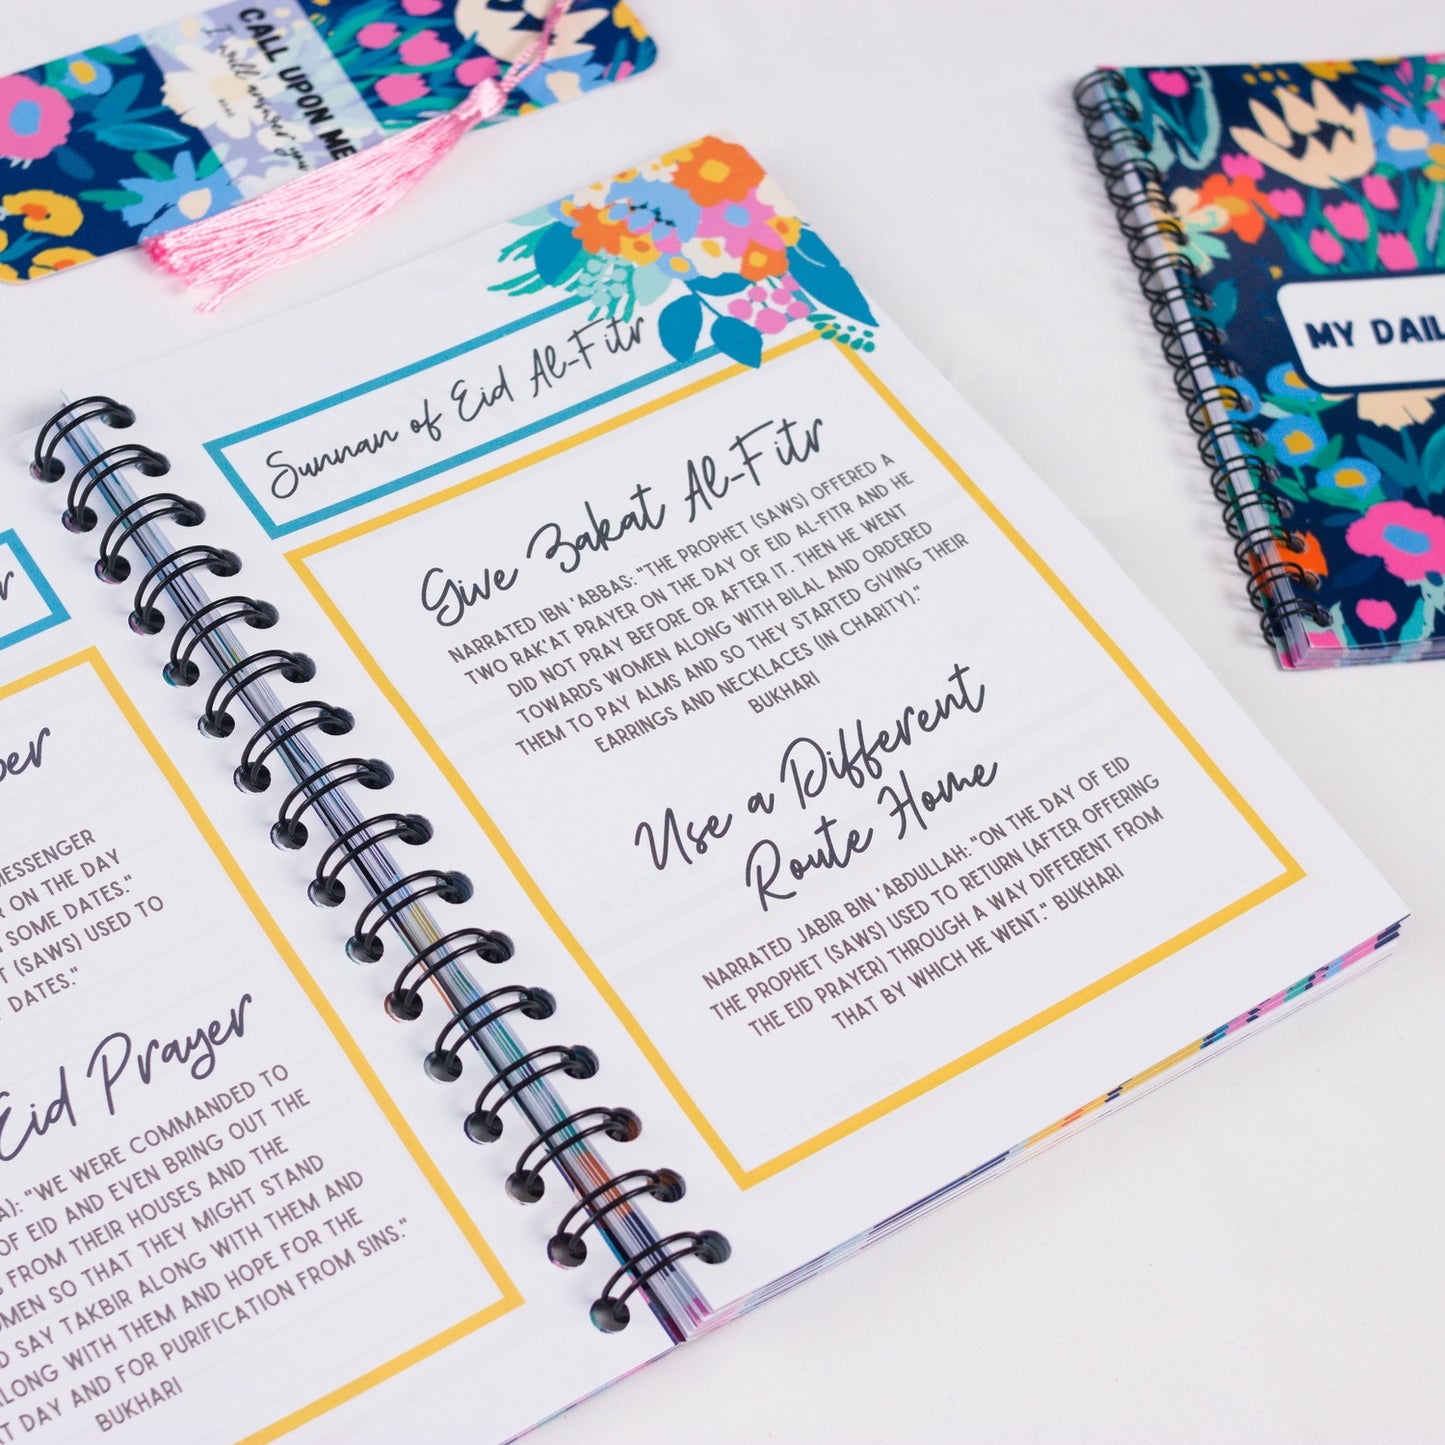 CALL UPON ME
I will answer you
MY DAIL
Sunnan of Eid Al-Fitr
Give Zakat Al-Fitr
NARRATED IBN 'ABBAS: "THE PROPHET (SAWS) OFFERED A
TWO RAK'AT PRAYER ON THE DAY OF EID AL-FITR AND HE
DID NOT PRAY BEFORE OR AFTER IT. THEN HE WENT
TOWARDS WOMEN ALONG WITH BILAL AND ORDERED
THEM TO PAY ALMS AND SO THEY STARTED GIVING THEIR
EARRINGS AND NECKLACES (IN CHARITY)."
BUKHARI
Use a Different
Route Home
NARRATED JABIR BIN 'ABDULLAH: "ON THE DAY OF EID
THE PROPHET (SAWS) USED TO RETURN (AFTER OFFERING
THE EID PRAYER) THROUGH A WAY DIFFERENT FROM
THAT BY WHICH HE WENT." BUKHARI
r
ber
MESSENGER
R ON THE DAY
N SOME DATES."
T (SAWS) USED TO
DATES."
Eid Prayer
A): "WE WERE COMMANDED TO
OF EID AND EVEN BRING OUT THE
FROM THEIR HOUSES AND THE
OMEN SO THAT THEY MIGHT STAND
D SAY TAKBIR ALONG WITH THEM AND
ALONG WITH THEM AND HOPE FOR THE
T DAY AND FOR PURIFICATION FROM SINS."
BUKHARI